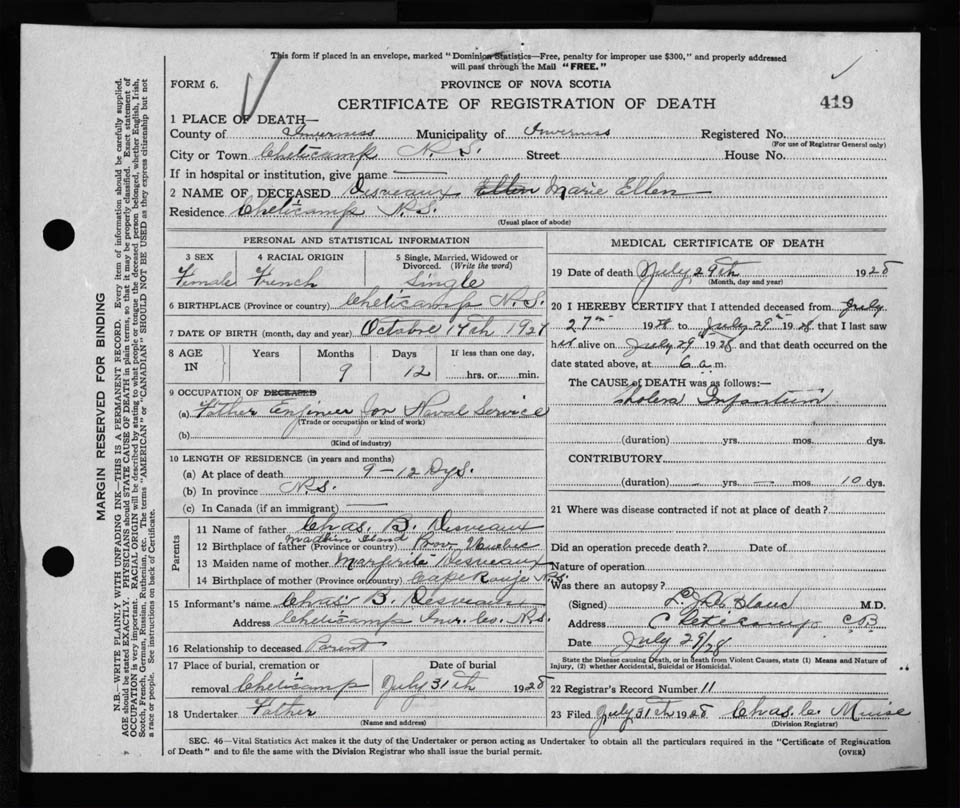 This form if placed in an envelope, marked "Dominion Statistics—Free, penalty for improper use $300," and properly addressed
will pass through the Mail "FREE."
FORM 6.
PROVINCE OF NOVA SCOTIA
CERTIFICATE OF REGISTRATION OF DEATH
419
1 PLACE OF DEATH—
County of Inverness Municipality of Inverness Registered No.
(For use of Registrar General only)
City or Town Cheticamp N.S. Street House No.
If in hospital or institution, give name —
2 NAME OF DECEASED Desveaux Ellen Marie Ellen
Residence Cheticamp N.S.
(Usual place of abode)
PERSONAL AND STATISTICAL INFORMATION
3 SEX 4 RACIAL ORIGIN 5 Single, Married, Widowed or Divorced. (Write the word)
Female French Single
6 BIRTHPLACE (Province or country) Cheticamp N.S.
7 DATE OF BIRTH (month, day and year) Octobre 17th 1927
8 AGE IN Years Months Days If less than one day,
9 12 hrs. or min.
9 OCCUPATION OF DECEASED
(a) Father Engineer for Naval Service
(Trade or occupation or kind of work)
(b)
(Kind of industry)
10 LENGTH OF RESIDENCE (in years and months)
(a) At place of death 9 - 12 Dys.
(b) In province N.S.
(c) In Canada (if an immigrant) —
Parents
11 Name of father Chas. B. Desveaux
12 Birthplace of father (Province or country) Madlien Island Prov. Quebec
13 Maiden name of mother Margerite Desveaux
14 Birthplace of mother (Province or country) Cape Rouge N.S.
15 Informant's name Chas B. Desveaux
Address Cheticamp Inv. Co. N.S.
16 Relationship to deceased Parent
17 Place of burial, cremation or Date of burial
removal Cheticamp July 31th 1928
18 Undertaker Father
(Name and address)
MEDICAL CERTIFICATE OF DEATH
19 Date of death July 29th 1928
(Month, day and year)
20 I HEREBY CERTIFY that I attended deceased from July
27th 1928 to July 29th 1928 that I last saw
her alive on July 29 1928 and that death occurred on
date stated above, at 6 a.m.
The CAUSE of DEATH was as follows:—
Cholera Infantum
(duration) yrs. mos. dys.
CONTRIBUTORY
(duration) — yrs. — mos. 10 dys.
21 Where was disease contracted if not at place of death?
Did an operation precede death? Date of
Nature of operation
Was there an autopsy?
(Signed) M.D.
Address Cheticamp C.B.
Date July 29/28
State the Disease causing Death, or in death from Violent Causes, state (1) Means and Nature of
Injury, (2) whether Accidental, Suicidal or Homicidal.
22 Registrar's Record Number 11
23 Filed July 31th 1928 Chas. C. Muise
(Division Registrar)
SEC. 46—Vital Statistics Act makes it the duty of the Undertaker or person acting as Undertaker to obtain all the particulars required in the "Certificate of Registration
of Death" and to file the same with the Division Registrar who shall issue the burial permit.
(OVER)
MARGIN RESERVED FOR BINDING
N.B.—WRITE PLAINLY WITH UNFADING INK—THIS IS A PERMANENT RECORD. Every item of information should be carefully supplied.
AGE should be stated EXACTLY. PHYSICIANS should STATE CAUSE OF DEATH in plain terms, so that it may be properly classified. Exact statement of
OCCUPATION is very important. RACIAL ORIGIN will be described by stating to what people or tongue the deceased person belonged, whether English, Irish,
Scotch, French, German, Russian, Ruthenian, etc. The terms "AMERICAN" or "CANADIAN" SHOULD NOT BE USED as they express citizenship but not
a race or people. See instructions on back of Certificate.